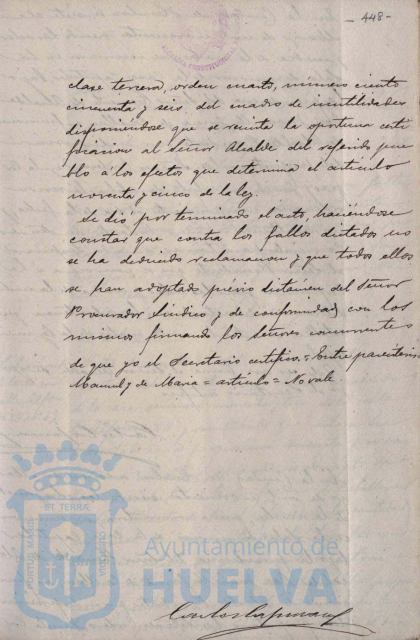 - 448 -
clase tercera, orden cuarto, número ciento
cincuenta y seis del cuadro de inutilidades
disponiéndose que se remita la oportuna certi
ficacion al Señor Alcalde del referido pue
blo á los efectos que determina el artículo
noventa y cinco de la ley.
Se dió por terminado el acto, haciéndose
constar que contra los fallos dictados no
se ha deducido reclamacion y que todos ellos
se han adoptado prévio dictámen del Señor
Procurador Síndico y de conformidad con los
mismos firmando los señores concurrentes
de que yo el Secretario certifico. = Entre paréntesis
Manuel y de Maria = artículo = No vale
ET TERRÆ
PORTUS MARIS
CUSTODIA
Ayuntamiento de
HUELVA